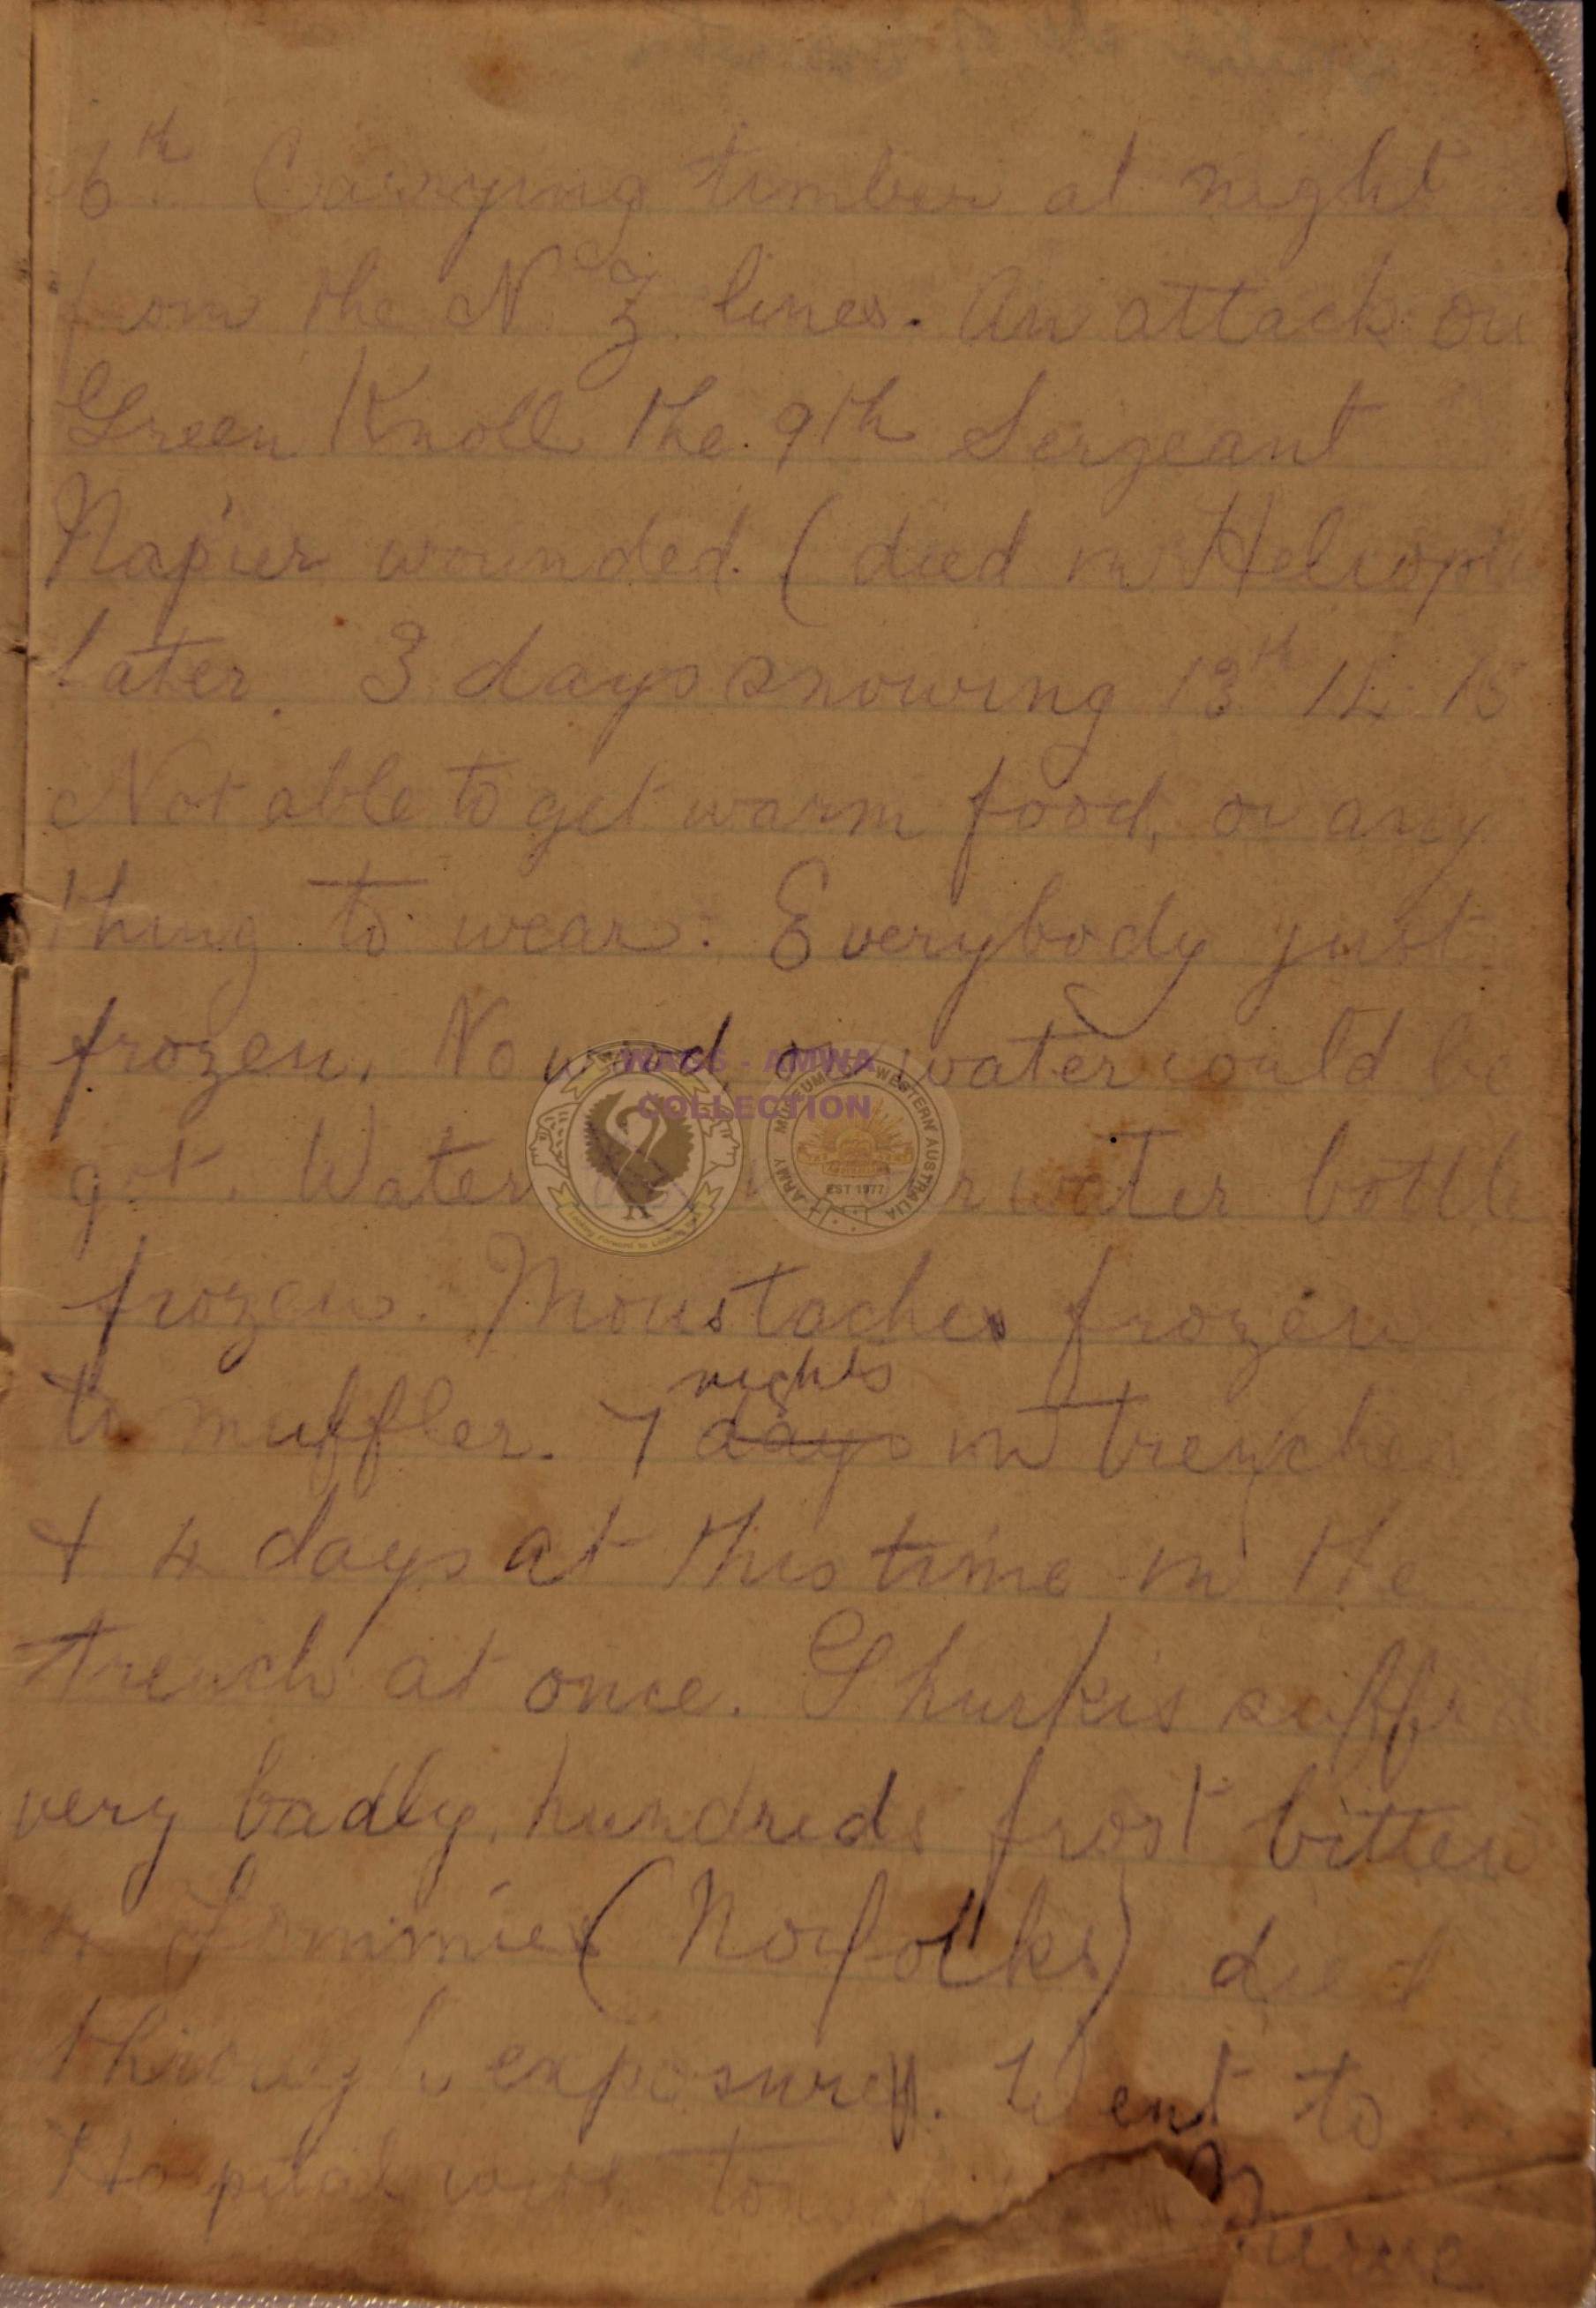 6th Carrying timber at night
from the N Z lines. An attack on
Green Knoll the 9th Sergeant
Napier wounded. (died in Heliopolis
later. 3 days snowing 13th 14 15
Not able to get warm food, or any
thing to wear. Everybody just
frozen. No wood or water could be
got. Water water bottle
frozen. Moustaches frozen
nights
to muffler. 7 days in trenches
+ 4 days at this time in the
trench at once. Ghurkis suffrd
very badly, hundreds frost bitten
Tommies (Norfolks) died
through exposure. Went to
Hospital
WAGS - AMWA
COLLECTION
ARMY MUSEUM WESTERN AUSTRALIA
EST 1977